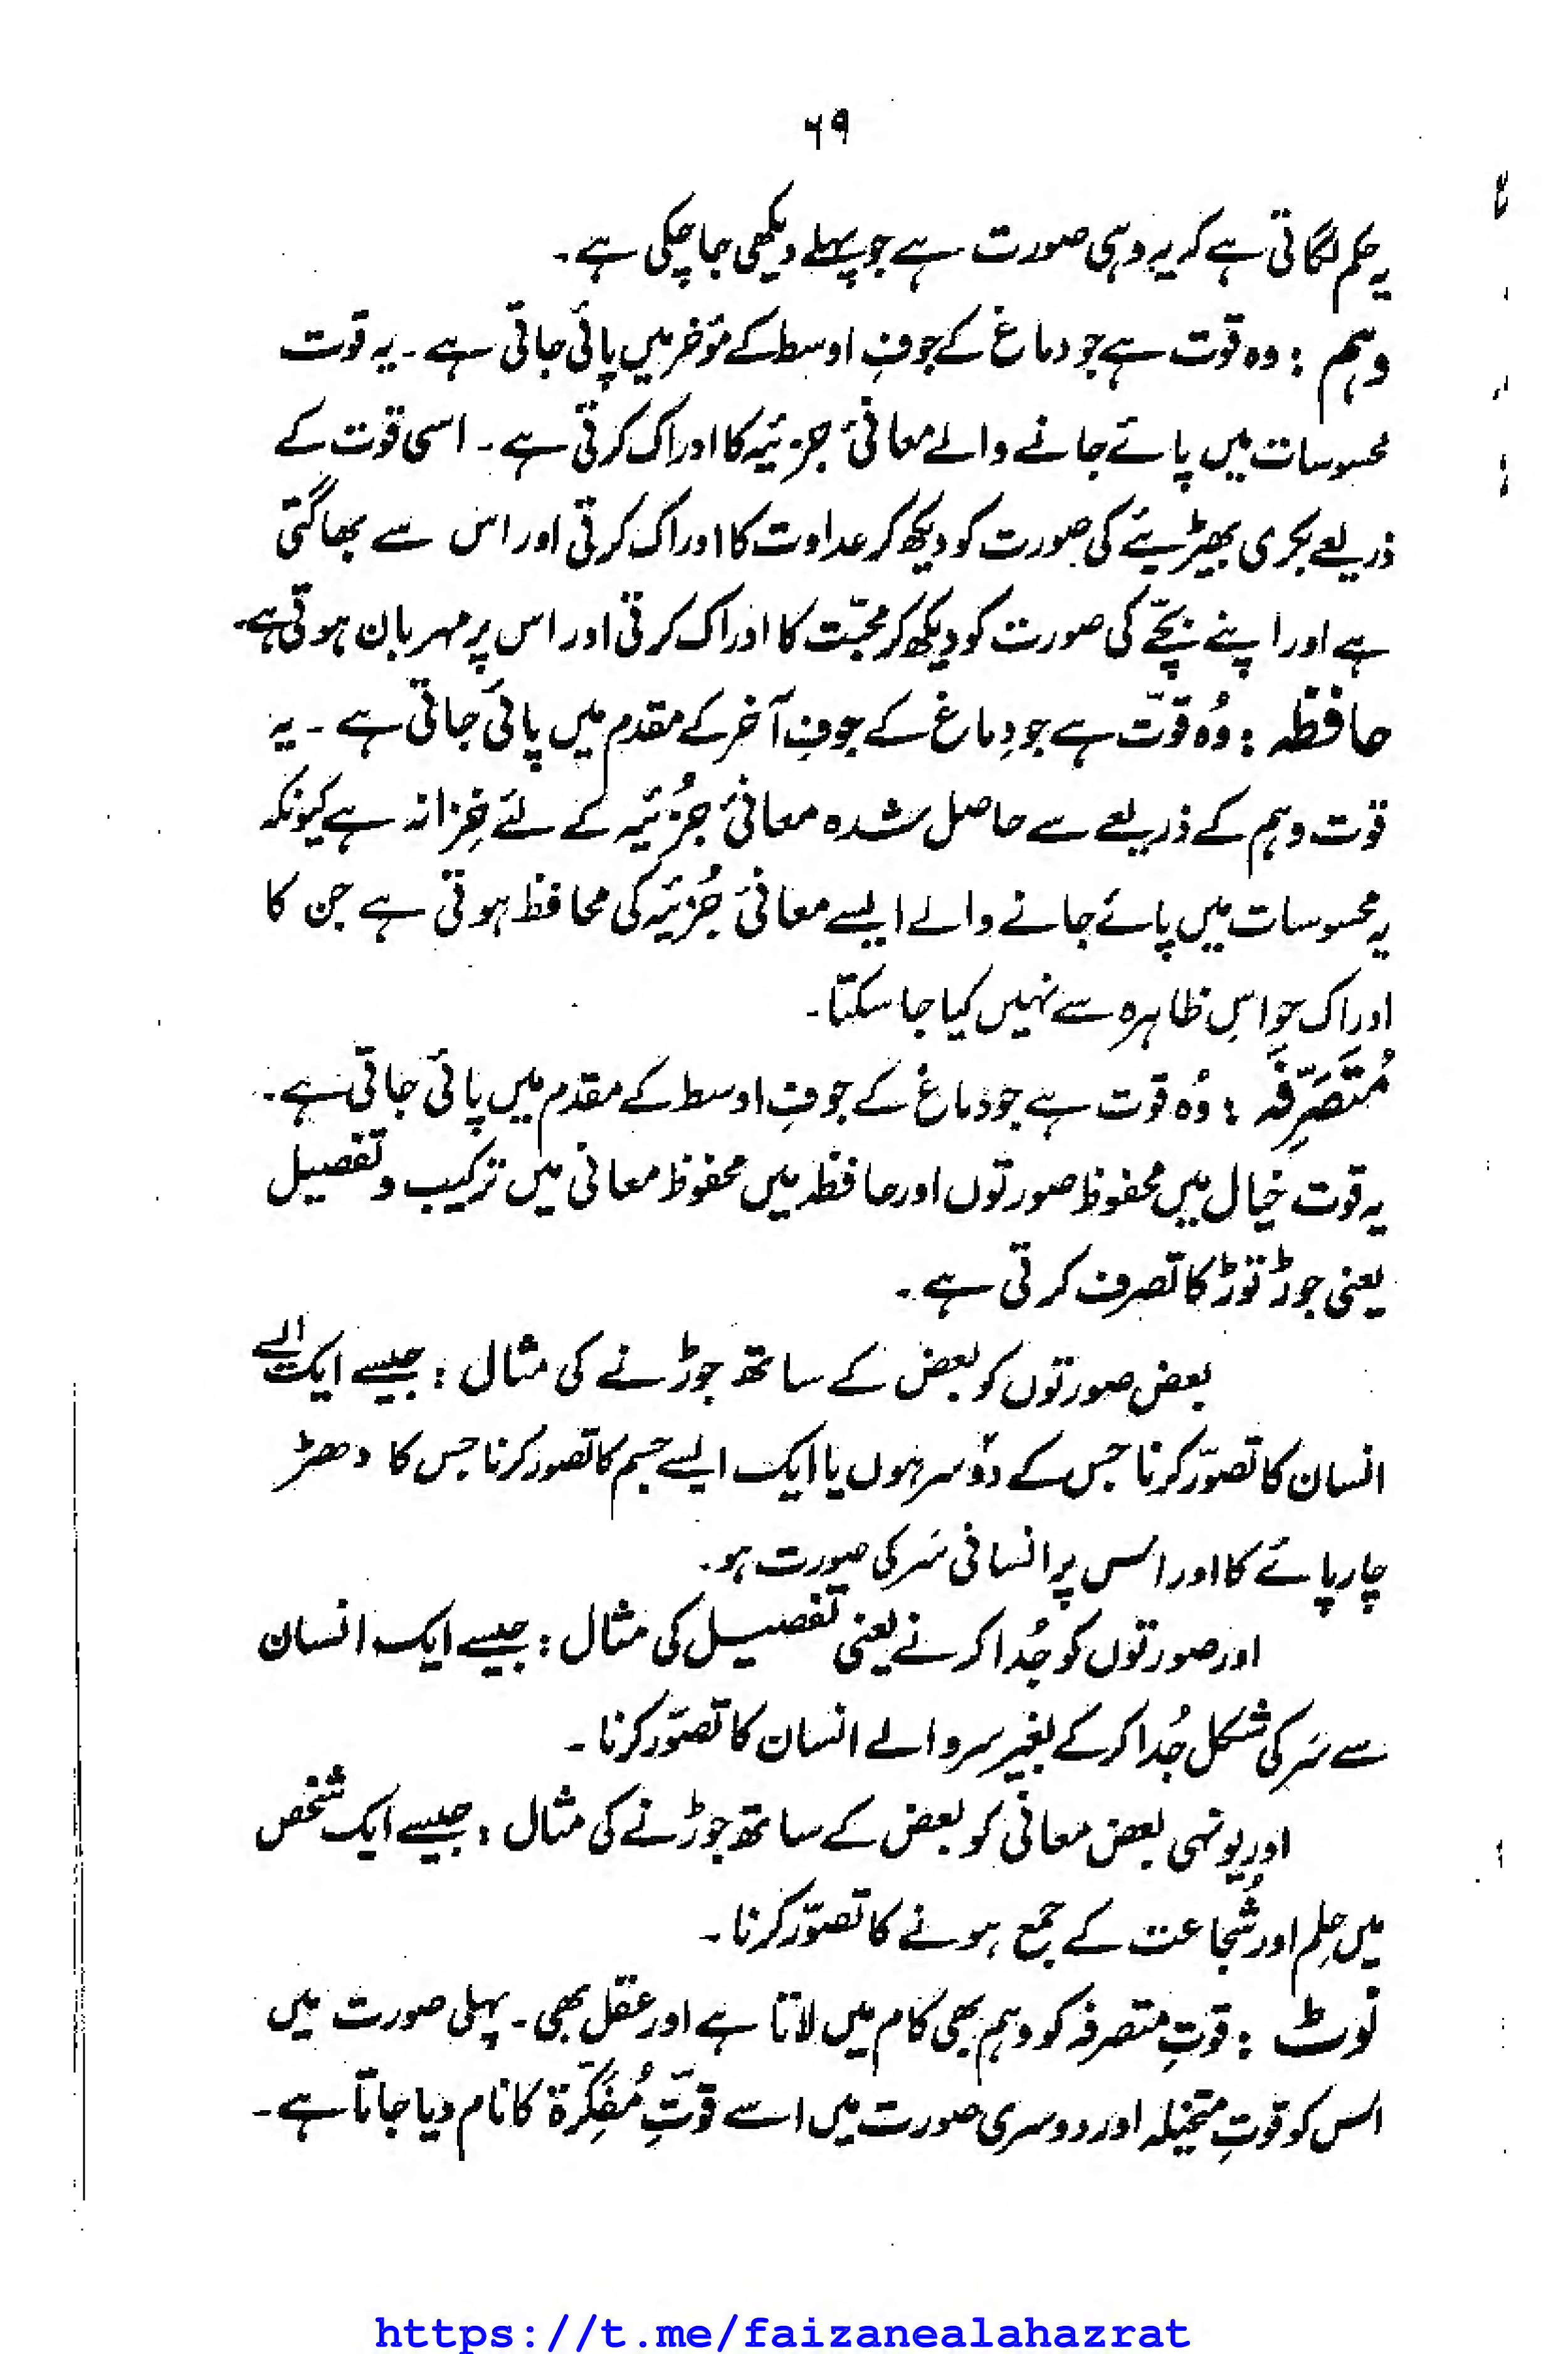 ۶۹
یہ حکم لگاتی ہے کہ یہ وہی صورت ہے جو پہلے دیکھی جا چکی ہے۔
وہم : وہ قوت ہے جو دماغ کے جوفِ اوسط کے مؤخر میں پائی جاتی ہے۔ یہ قوت
محسوسات میں پائے جانے والے معانیٔ جزئیہ کا ادراک کرتی ہے۔ اسی قوت کے
ذریعے بکری بھیڑیئے کی صورت کو دیکھ کر عداوت کا ادراک کرتی اور اس سے بھاگتی
ہے اور اپنے بچّے کی صورت کو دیکھ کر محبّت کا ادراک کرتی اور اس پر مہربان ہوتی ہے۔
حافظہ : وُہ قوّت ہے جو دِماغ کے جوفِ آخر کے مقدم میں پائی جاتی ہے۔ یہ
قوت وہم کے ذریعے سے حاصل شدہ معانیٔ جُزئیہ کے لئے خِزانہ ہے کیونکہ
یہ محسوسات میں پائے جانے والے ایسے معانیٔ جُزئیہ کی محافظ ہوتی ہے جن کا
ادراک حواسِ ظاہرہ سے نہیں کیا جا سکتا۔
مُتَصَرِّفَہ : وُہ قوت ہے جو دماغ کے جوفِ اوسط کے مقدم میں پائی جاتی ہے۔
یہ قوت خیال میں محفوظ صورتوں اور حافظہ میں محفوظ معانی میں ترکیب و تفصیل
یعنی جوڑ توڑ کا تصرف کرتی ہے۔
بعض صورتوں کو بعض کے ساتھ جوڑنے کی مثال : جیسے ایک ایسے
انسان کا تصوّر کرنا جس کے دوُ سر ہوں یا ایک ایسے جسم کا تصور کرنا جس کا دھڑ
چارپائے کا اور اس پر انسانی سَر کی صورت ہو۔
اور صورتوں کو جُدا کرنے یعنی تفصیل کی مثال : جیسے ایک انسان
سے سَر کی شکل جُدا کر کے بغیر سر والے انسان کا تصوّر کرنا۔
اور یونہی بعض معانی کو بعض کے ساتھ جوڑنے کی مثال : جیسے ایک شخص
میں حِلم اور شُجاعت کے جمع ہونے کا تصوّر کرنا۔
نوٹ : قوتِ متصرفہ کو وہم بھی کام میں لاتا ہے اور عقل بھی۔ پہلی صورت میں
اس کو قوتِ متخیلہ اور دوسری صورت میں اسے قوّتِ مُفَکِّرۃ کا نام دیا جاتا ہے۔
https://t.me/faizanealahazrat